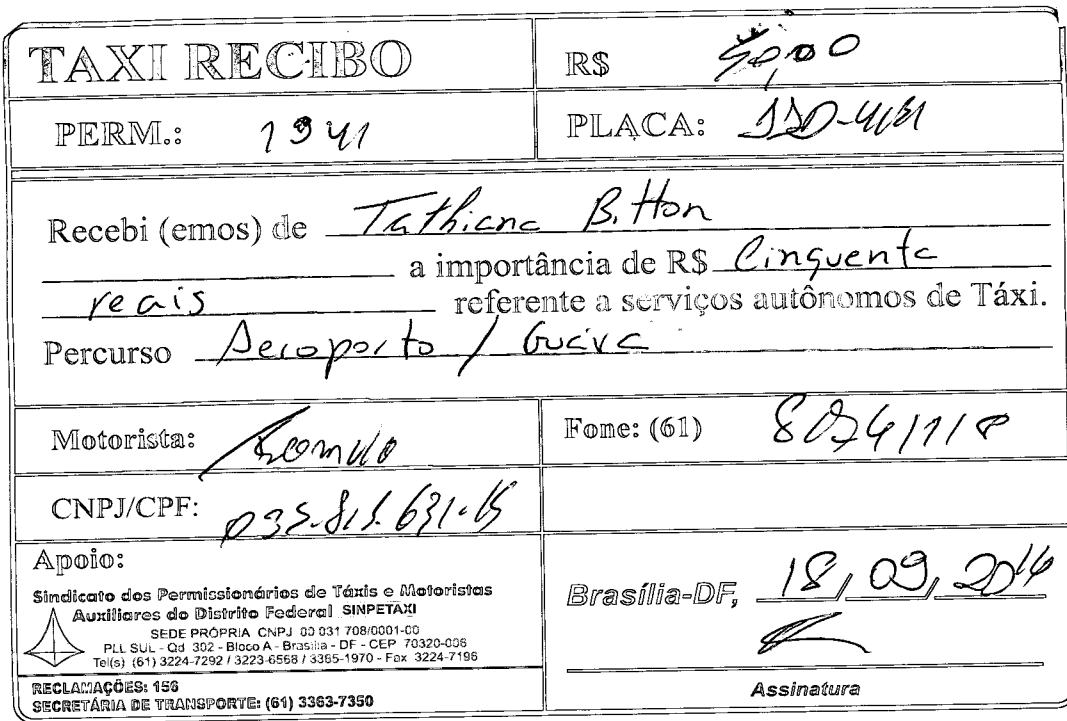 TAXI RECIBO
R$ 50,00
PERM.: 1941
PLACA:
Recebi (emos) de Tathiana Bitton
a importância de R$ Cinquenta
reais referente a serviços autônomos de Táxi.
Percurso Aeroporto / Guará
Motorista: Romulo
Fone: (61)
CNPJ/CPF:
Apoio:
Sindicato dos Permissionários de Táxis e Motoristas
Auxiliares do Distrito Federal SINPETAXI
SEDE PRÓPRIA CNPJ 00 031 708/0001-00
PLL SUL - Qd 302 - Bloco A - Brasília - DF - CEP 70320-006
Tel(s) (61) 3224-7292 / 3223-6568 / 3365-1970 - Fax 3224-7196
RECLAMAÇÕES: 156
SECRETÁRIA DE TRANSPORTE: (61) 3363-7350
Brasília-DF, 18, 09, 2014
Assinatura